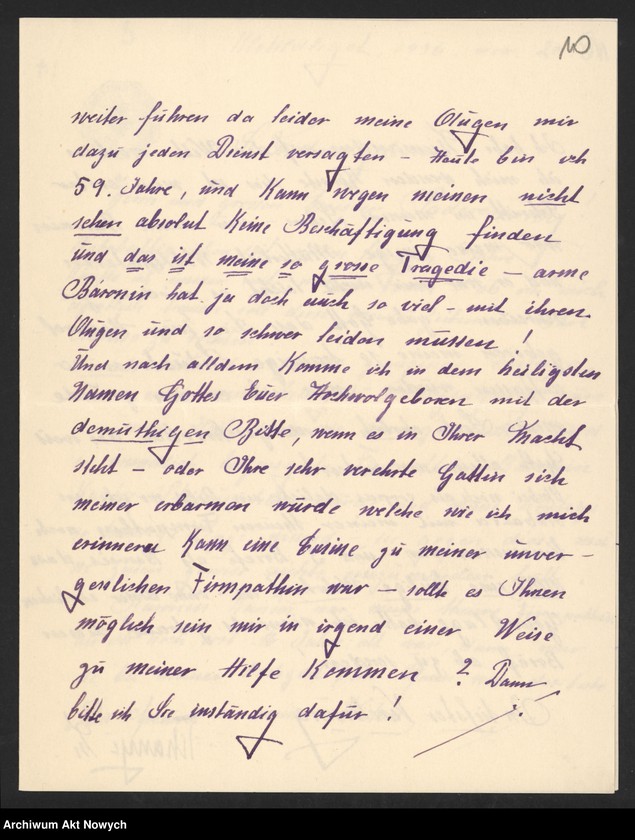 10
weiter führen da leider meine Augen mir
dazu jeden Dienst versagten – Heute bin ich
59. Jahre, und Kann wegen meinen nicht
sehen absolut Keine Beschäftigung finden
und das ist meine so grosse Tragedie – arme
Baronin hat ja doch auch so viel – mit ihren
Augen und so schwer leiden müssen !
Und nach alldem Komme ich in dem heiligsten
Namen Gottes Euer Hochwolgeboren mit der
demüthigen Bitte, wenn es in Ihrer Macht
steht – oder Ihre sehr verehrte Gattin sich
meiner erbarmen würde welche wie ich mich
erinnern Kann eine Cusine zu meiner unver –
gesslichen Firmpathin war – sollte es Ihnen
möglich sein mir in irgend einer Weise
zu meiner Hilfe Kommen ? Dann
bitte ich Sie inständig dafür !
Archiwum Akt Nowych